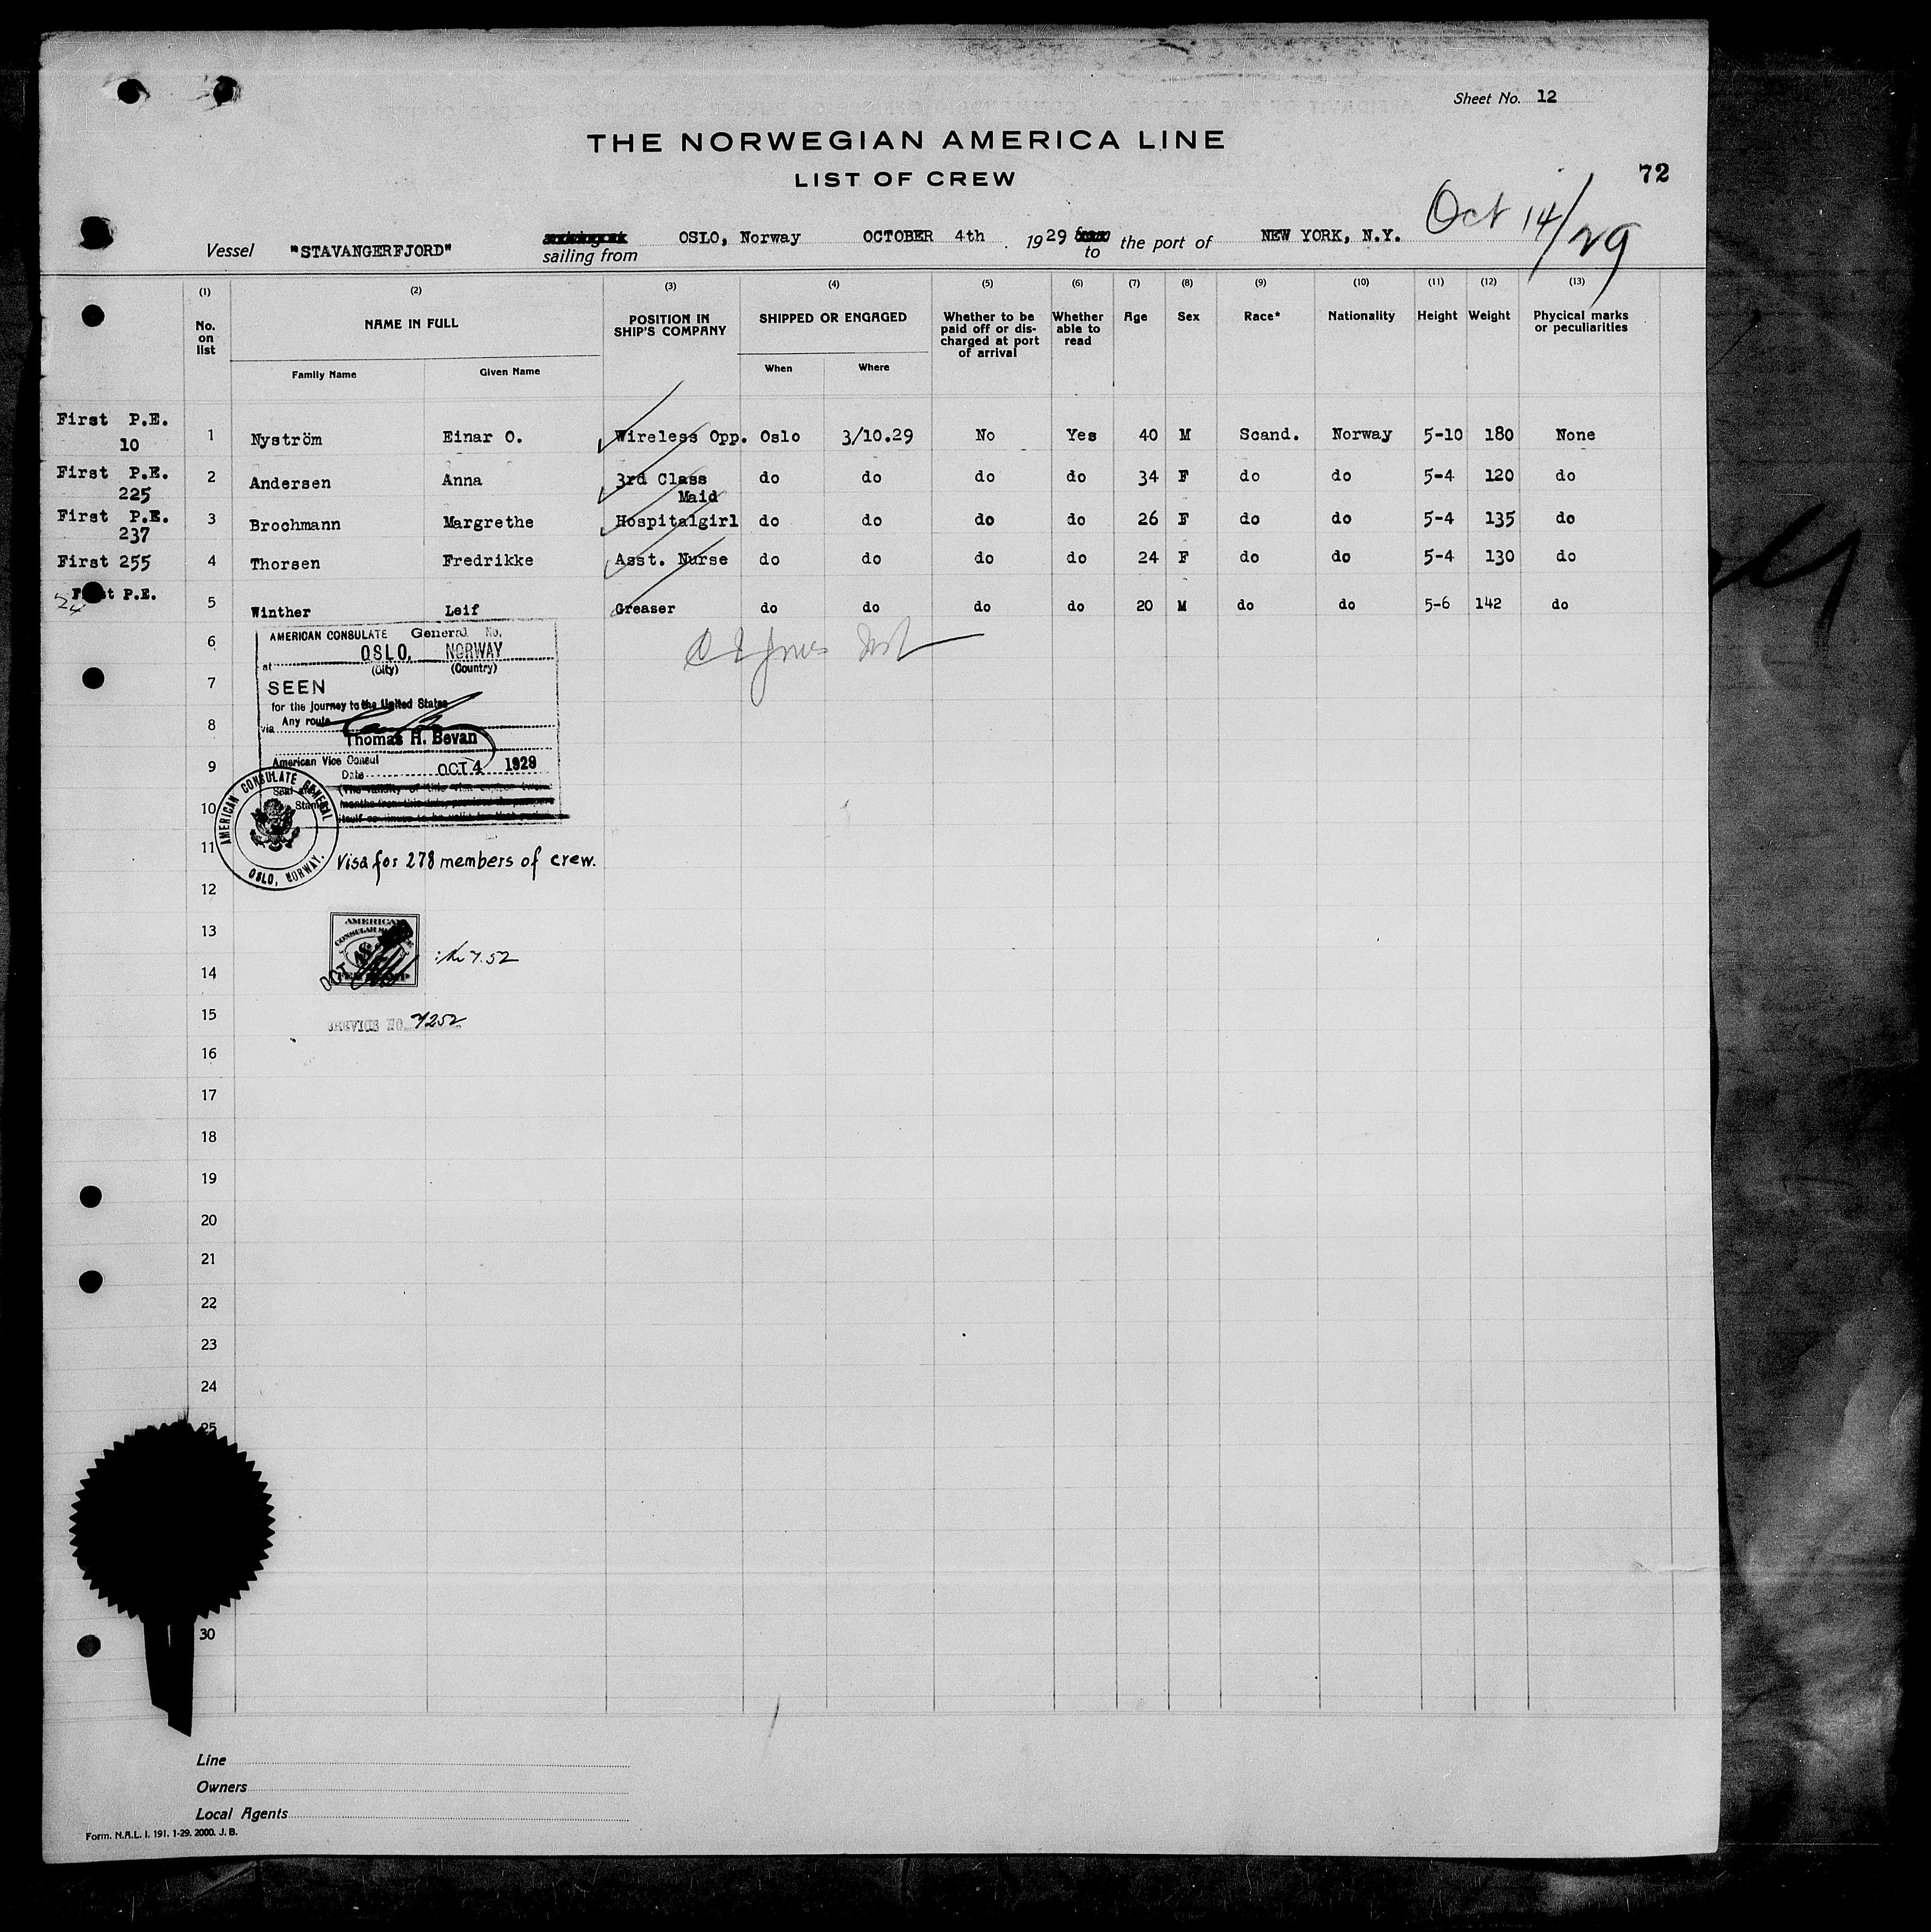 Sheet No. 12
THE NORWEGIAN AMERICA LINE
LIST OF CREW
72
Oct 14/29
Vessel "STAVANGERFJORD" sailing from OSLO, Norway OCTOBER 4th 1929 to the port of NEW YORK, N.Y.
(1) (2) (3) (4) (5) (6) (7) (8) (9) (10) (11) (12) (13)
No. on list NAME IN FULL POSITION IN SHIP'S COMPANY SHIPPED OR ENGAGED Whether to be paid off or discharged at port of arrival Whether able to read Age Sex Race* Nationality Height Weight Phycical marks or peculiarities
Family Name Given Name When Where
First P.E. 10 1 Nyström Einar O. Wireless Opp. Oslo 3/10.29 No Yes 40 M Scand. Norway 5-10 180 None
First P.E. 225 2 Andersen Anna 3rd Class Maid do do do do 34 F do do 5-4 120 do
First P.E. 237 3 Brochmann Margrethe Hospitalgirl do do do do 26 F do do 5-4 135 do
First 255 4 Thorsen Fredrikke Asst. Nurse do do do do 24 F do do 5-4 130 do
First P.E. 24 5 Winther Leif Greaser do do do do 20 M do do 5-6 142 do
6
AMERICAN CONSULATE General No.
at OSLO, NORWAY
(City) (Country)
7
SEEN
for the journey to the United States
8
via Any route
Thomas H. Bevan
9
American Vice Consul
Date OCT 4 1929
10
Seal and Stamp
AMERICAN CONSULATE GENERAL
OSLO, NORWAY.
11
Visa for 278 members of crew.
12
13
AMERICAN
CONSULAR SERVICE
OCT
14
7.52
15
SERVICE NO. 7252
16
17
18
19
20
21
22
23
24
25
30
Line
Owners
Local Agents
Form. N.A.L. I. 191. 1-29. 2000. J. B.